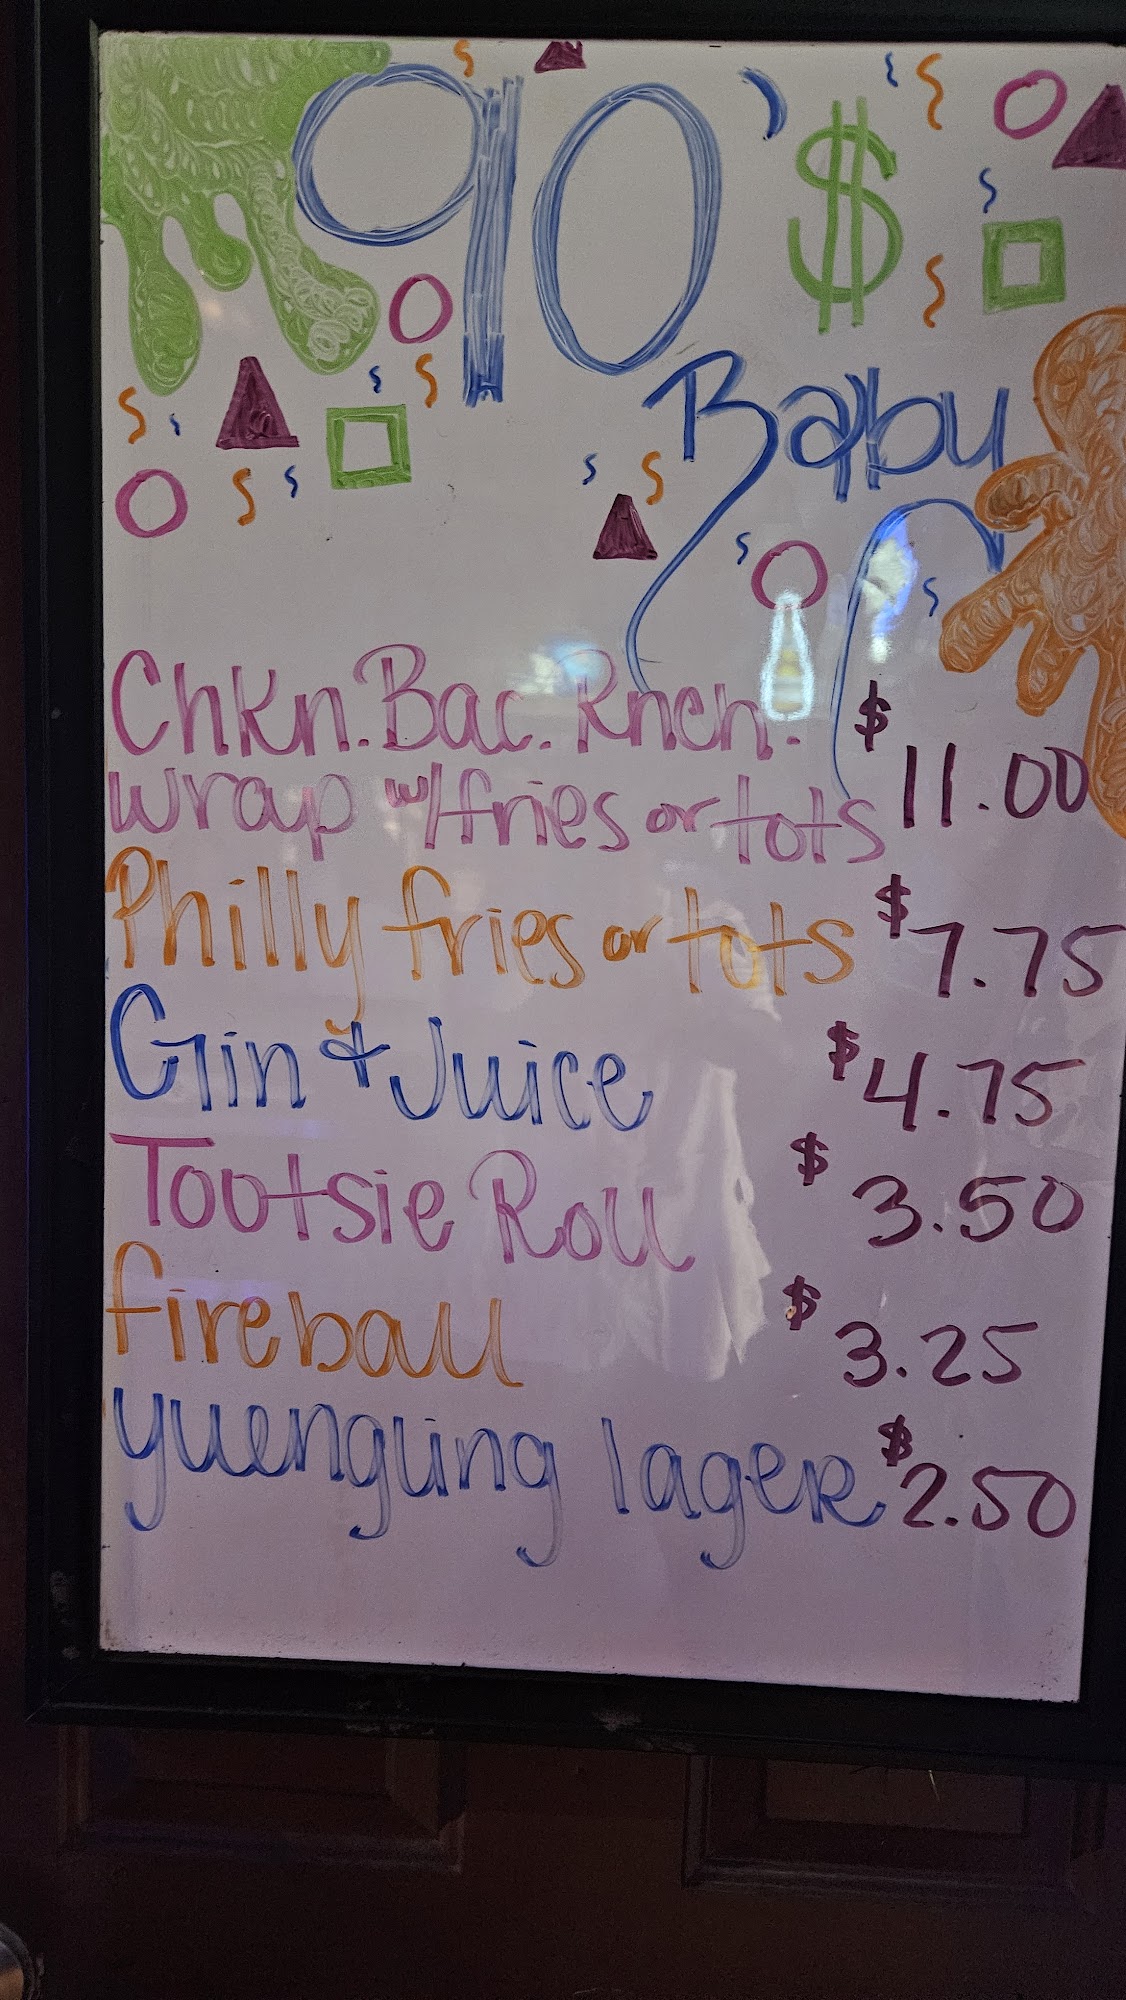 90'$
Baby
Chkn. Bac. Rnch. $11.00
wrap w/fries or tots
Philly fries or tots $7.75
Gin & Juice $4.75
Tootsie Roll $3.50
fireball $3.25
yuengling lager $2.50